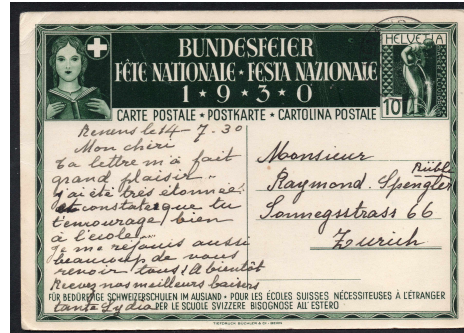 BUNDESFEIER
FÊTE NATIONALE • FESTA NAZIONALE
1 • 9 • 3 • 0
HELVETIA
10
CARTE POSTALE ★ POSTKARTE ★ CARTOLINA POSTALE
Renens le 14-7.30
Mon chéri
Ta lettre m'a fait
grand plaisir
j'ai été très étonnée
constate que tu
bien
à l'école
je me réjouis aussi
beaucoup de vous
revoir tous! à bientôt
Recevez nos meilleurs baisers
tante Lydia
Monsieur
Raymond. Spengler
Sonnegsstrass 66
Zurich
FÜR BEDÜRFTIGE SCHWEIZERSCHULEN IM AUSLAND • POUR LES ÉCOLES SUISSES NÉCESSITEUSES À L'ÉTRANGER
PER LE SCUOLE SVIZZERE BISOGNOSE ALL'ESTERO